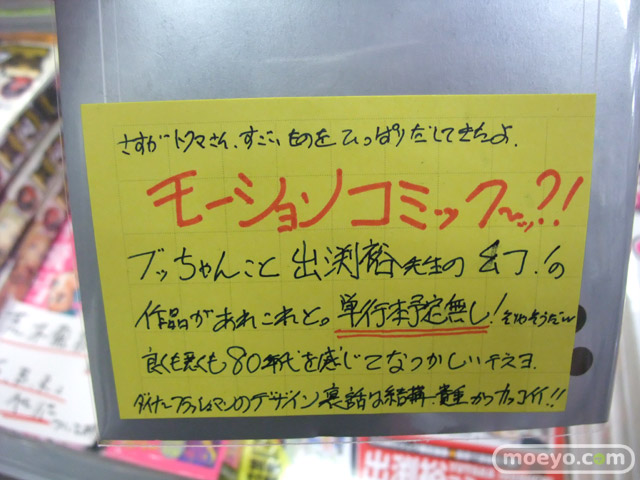 さすがトクマさん、すごいものをひっぱりだしてきたよ。
モーションコミック〜ッ?!
ブッちゃんこと出渕裕先生の幻!の
作品があれこれと。単行本予定無し!そりゃそうだw
良くも悪くも80年代を感じてなつかしいデスヨ
ダイナ フラッシュマンのデザイン裏話は結構貴重かつカッコイイ!!
出渕裕
moeyo.com